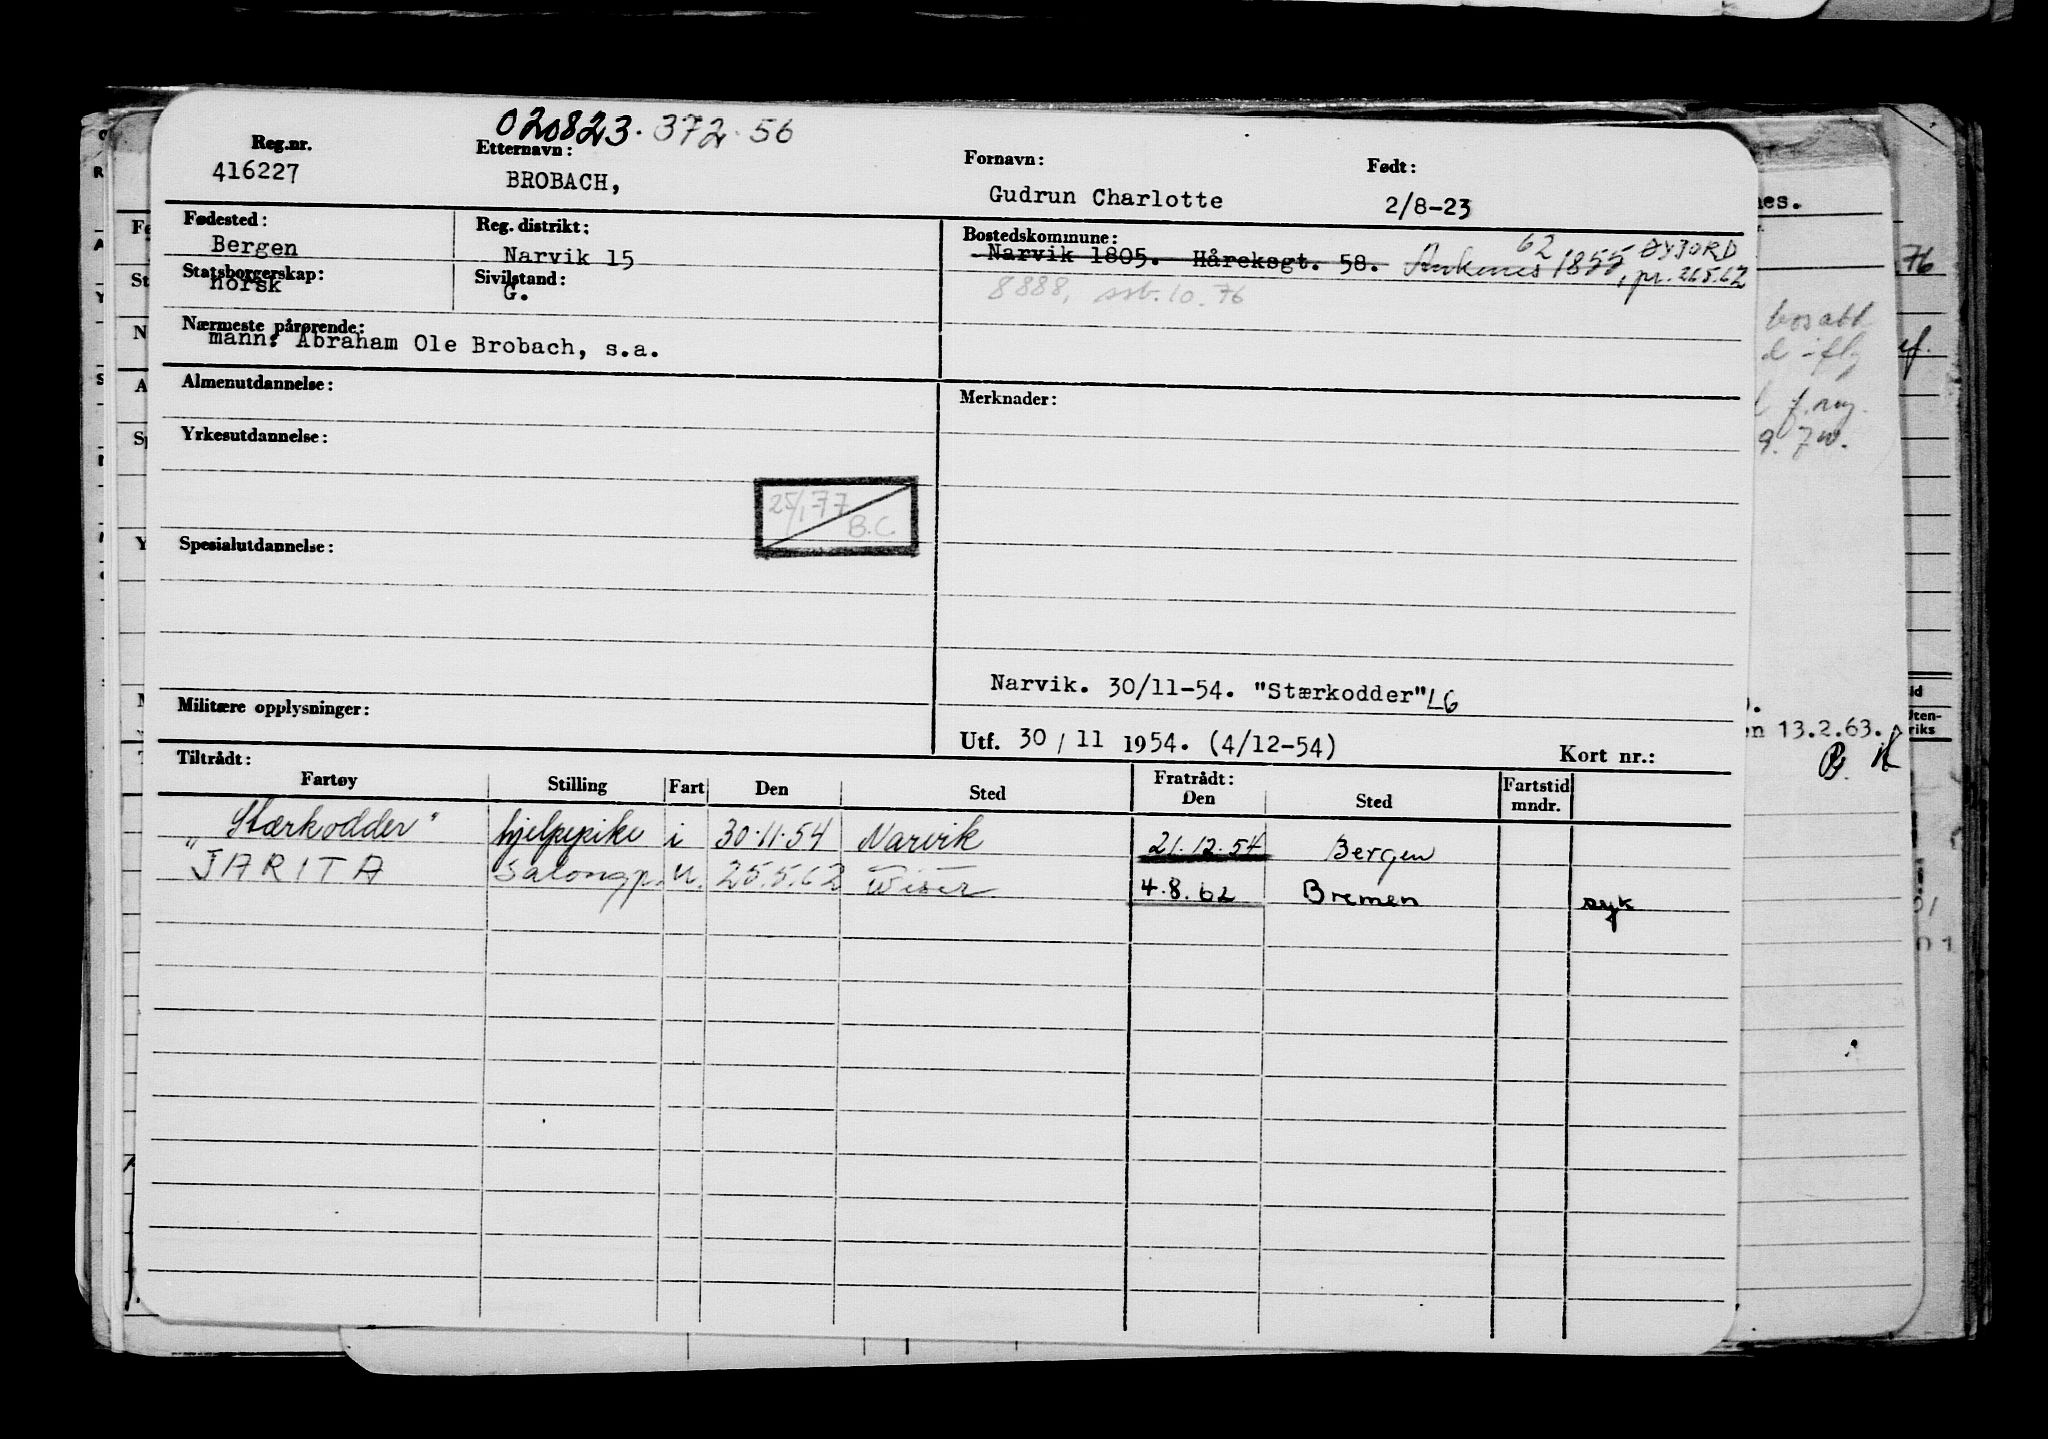 020823.372.56
Reg.nr. Etternavn: Fornavn: Født:
416227 BROBACH, Gudrun Charlotte 2/8-23
Fødested: Reg. distrikt: Bostedskommune:
Bergen Narvik 15 Narvik 1805. Håreksgt. 58. Ankenes 1855, 62 ØYJORD
, pr. 26.5.62
Statsborgerskap: Sivilstand:
norsk G. 8888, ssb. 10. 76
Nærmeste pårørende:
mann: Abraham Ole Brobach, s.a.
Almenutdannelse: Merknader:
Yrkesutdannelse:
25/1 77
B.C.
Spesialutdannelse:
Narvik. 30/11-54. "Stærkodder" LG
Militære opplysninger:
Utf. 30/11 1954. (4/12-54) Kort nr.:
Tiltrådt: Fratrådt:
Fartøy Stilling Fart Den Sted Den Sted Fartstid mndr.
"Stærkodder" hjelpepike i 30.11.54 Narvik 21.12.54 Bergen
JARITA Salongp. u. 25.5.62 4.8.62 Bremen syk
nes.
76
bosatt
f. reg.
en 13.2.63.